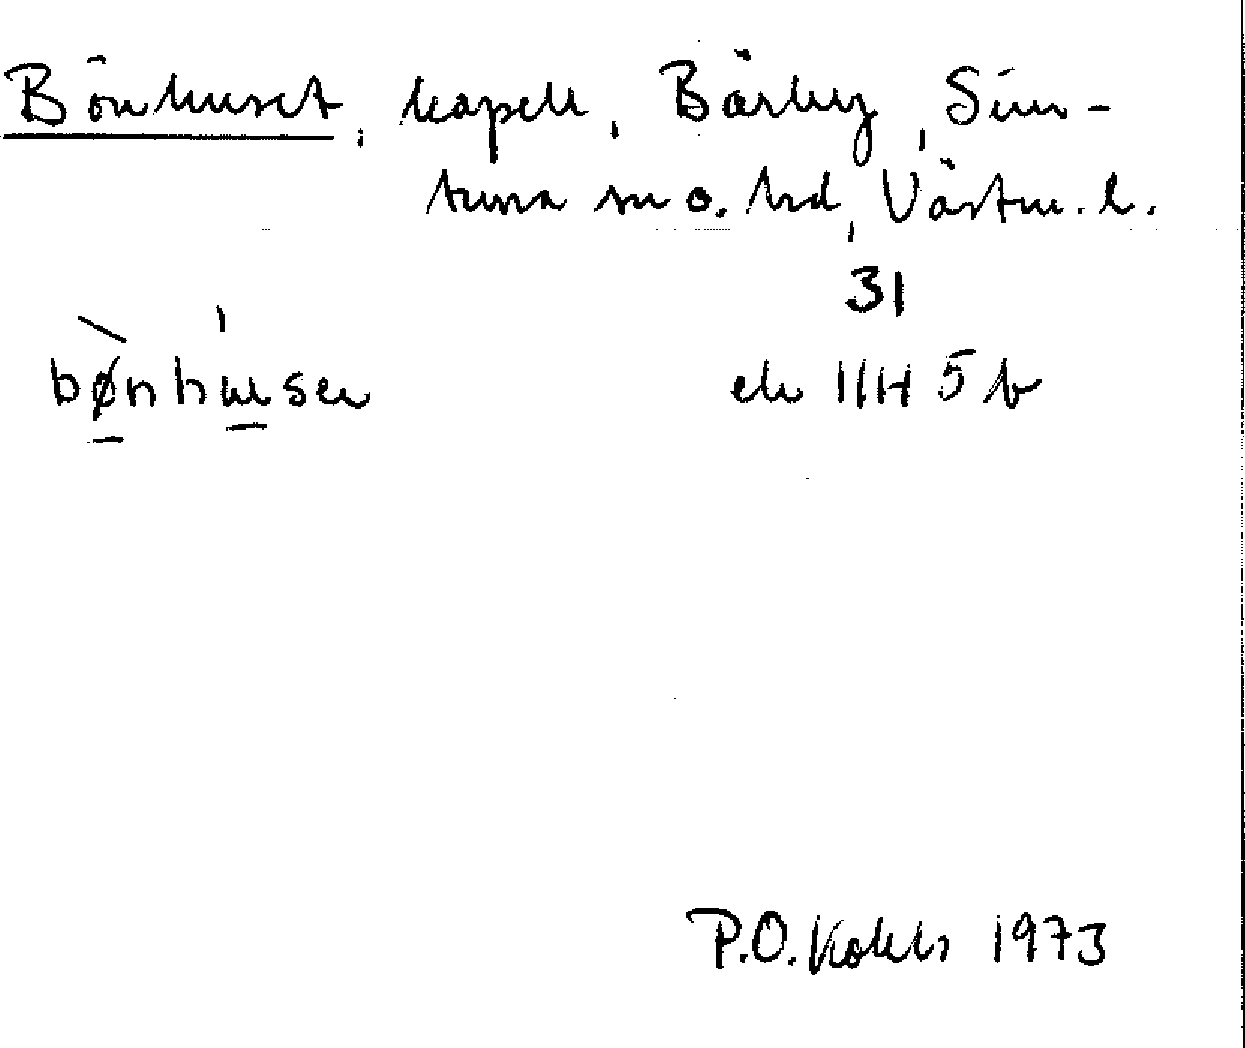 Bönhuset, kapell, Bärby, Sim-
tuna sn o. hd, Västm. l.
31
bø̀nhúsen ek 11H 5 b
P.O. 1973